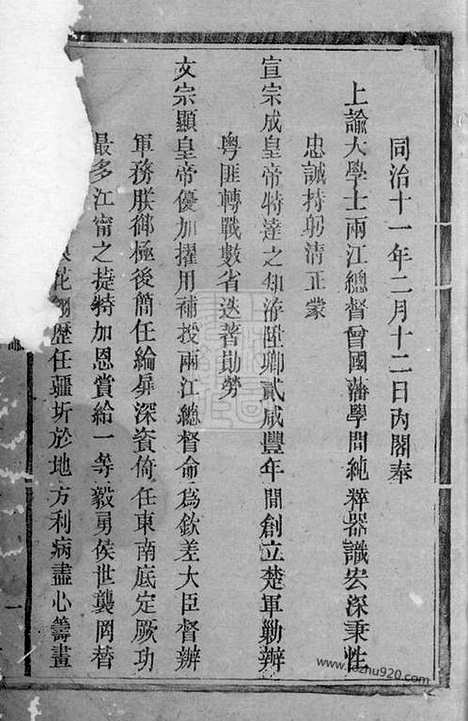 同治十一年二月十二日內閣奉
上諭大學士兩江總督曾國藩學問純粹器識宏深秉性
忠誠持躬清正蒙
宣宗成皇帝特達之知洊陞卿貳咸豐年間創立楚軍勦辦
粵匪轉戰數省迭著勛勞
文宗顯皇帝優加擢用補授兩江總督命爲欽差大臣督辦
軍務朕御極後簡任綸扉深資倚任東南底定厥功
最多江甯之捷特加恩賞給一等毅勇侯世襲罔替
花翎歷任疆圻於地方利病盡心籌畫
一
www.kozhu920.com